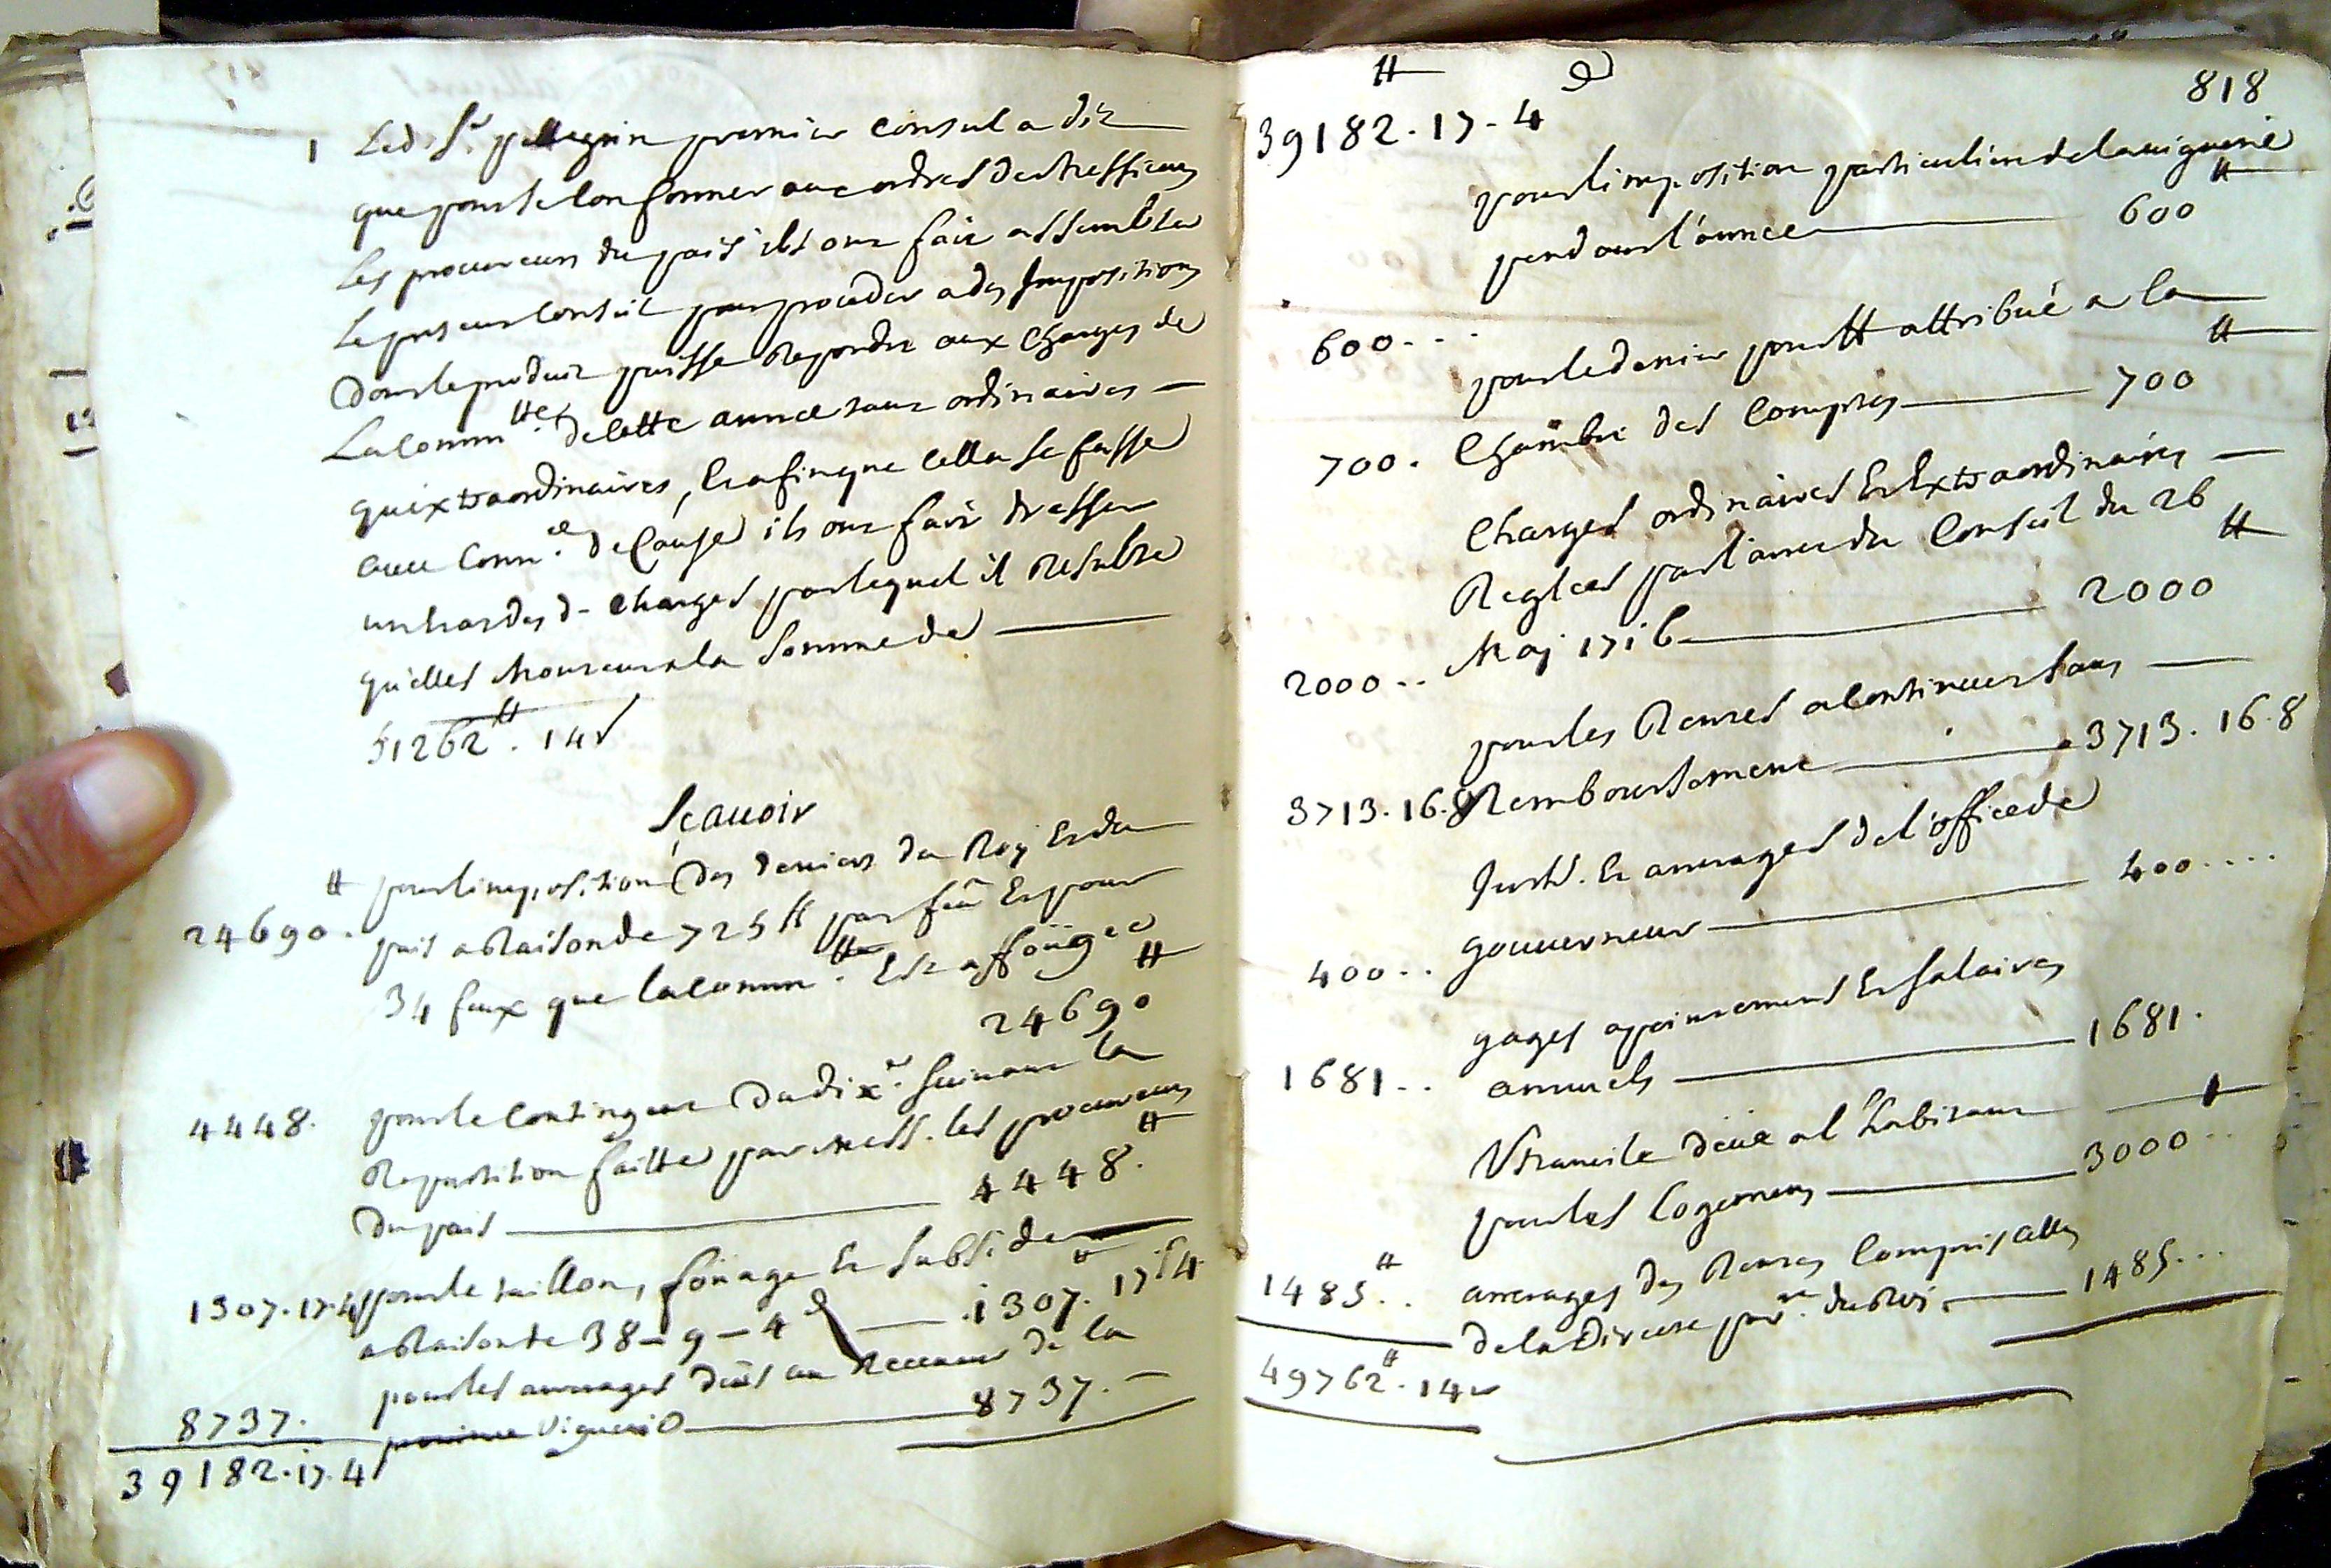 1 Led. Sr. pellegrin premier consul a dit
que pour se conformer aux ordres de Messieurs
les procureurs du pais ils ont fait assembler
le present conseil pour proceder a des Impositions
dont le produit puisse Repondre aux charges de
La commtté. de cette année tant ordinaires
qu'extraordinaires, Et afin que cella se fasse
avec conn.ce de cause ils ont fait dresser
un des charges par lequel il Resulte
qu'elles montent a la somme de
51262tt. 14s
Sçavoir
tt pour l'imposition des deniers du Roy Et du
24690. pais a Raison de 725tt par feu Et pour
34 feux que la commtté. Est affoüagée
tt
24690
4448. pour le contingent du dixe. suivant la
Repartition faitte par mess. les procureurs
du pais 4448.tt
1307.17.4 pour le taillon, foüage Et subside
a Raison de 38-9-4d 1307.tt 17s4
pour les arrerages deüs au Receveur de la
8737. province viguerie 8737.
39182.17.4
818
tt d
39182.17-4
pour l'imposition particuliere de la viguerie
pendant l'année 600tt
600...
pour le denier pour tt attribué a la
700. Chambre des Comptes 700tt
Charges ordinaires Et Extraordinaires
Reglees par l'arrest du Conseil du 26
May 1716 2000tt
2000..
pour les Rentes a continuer sans
3713.16.8 Remboursement 3713.16.8
Et arrerages de l'office de
400.. gouverneur 400....
gages apointements Et salaires
1681.. annuels 1681.
Ustancile deüe a l'habitant
pour les logemens 3000..
1485tt.. arrerages des Rentes compris celles
de la du Roi 1485...
49762tt.14s